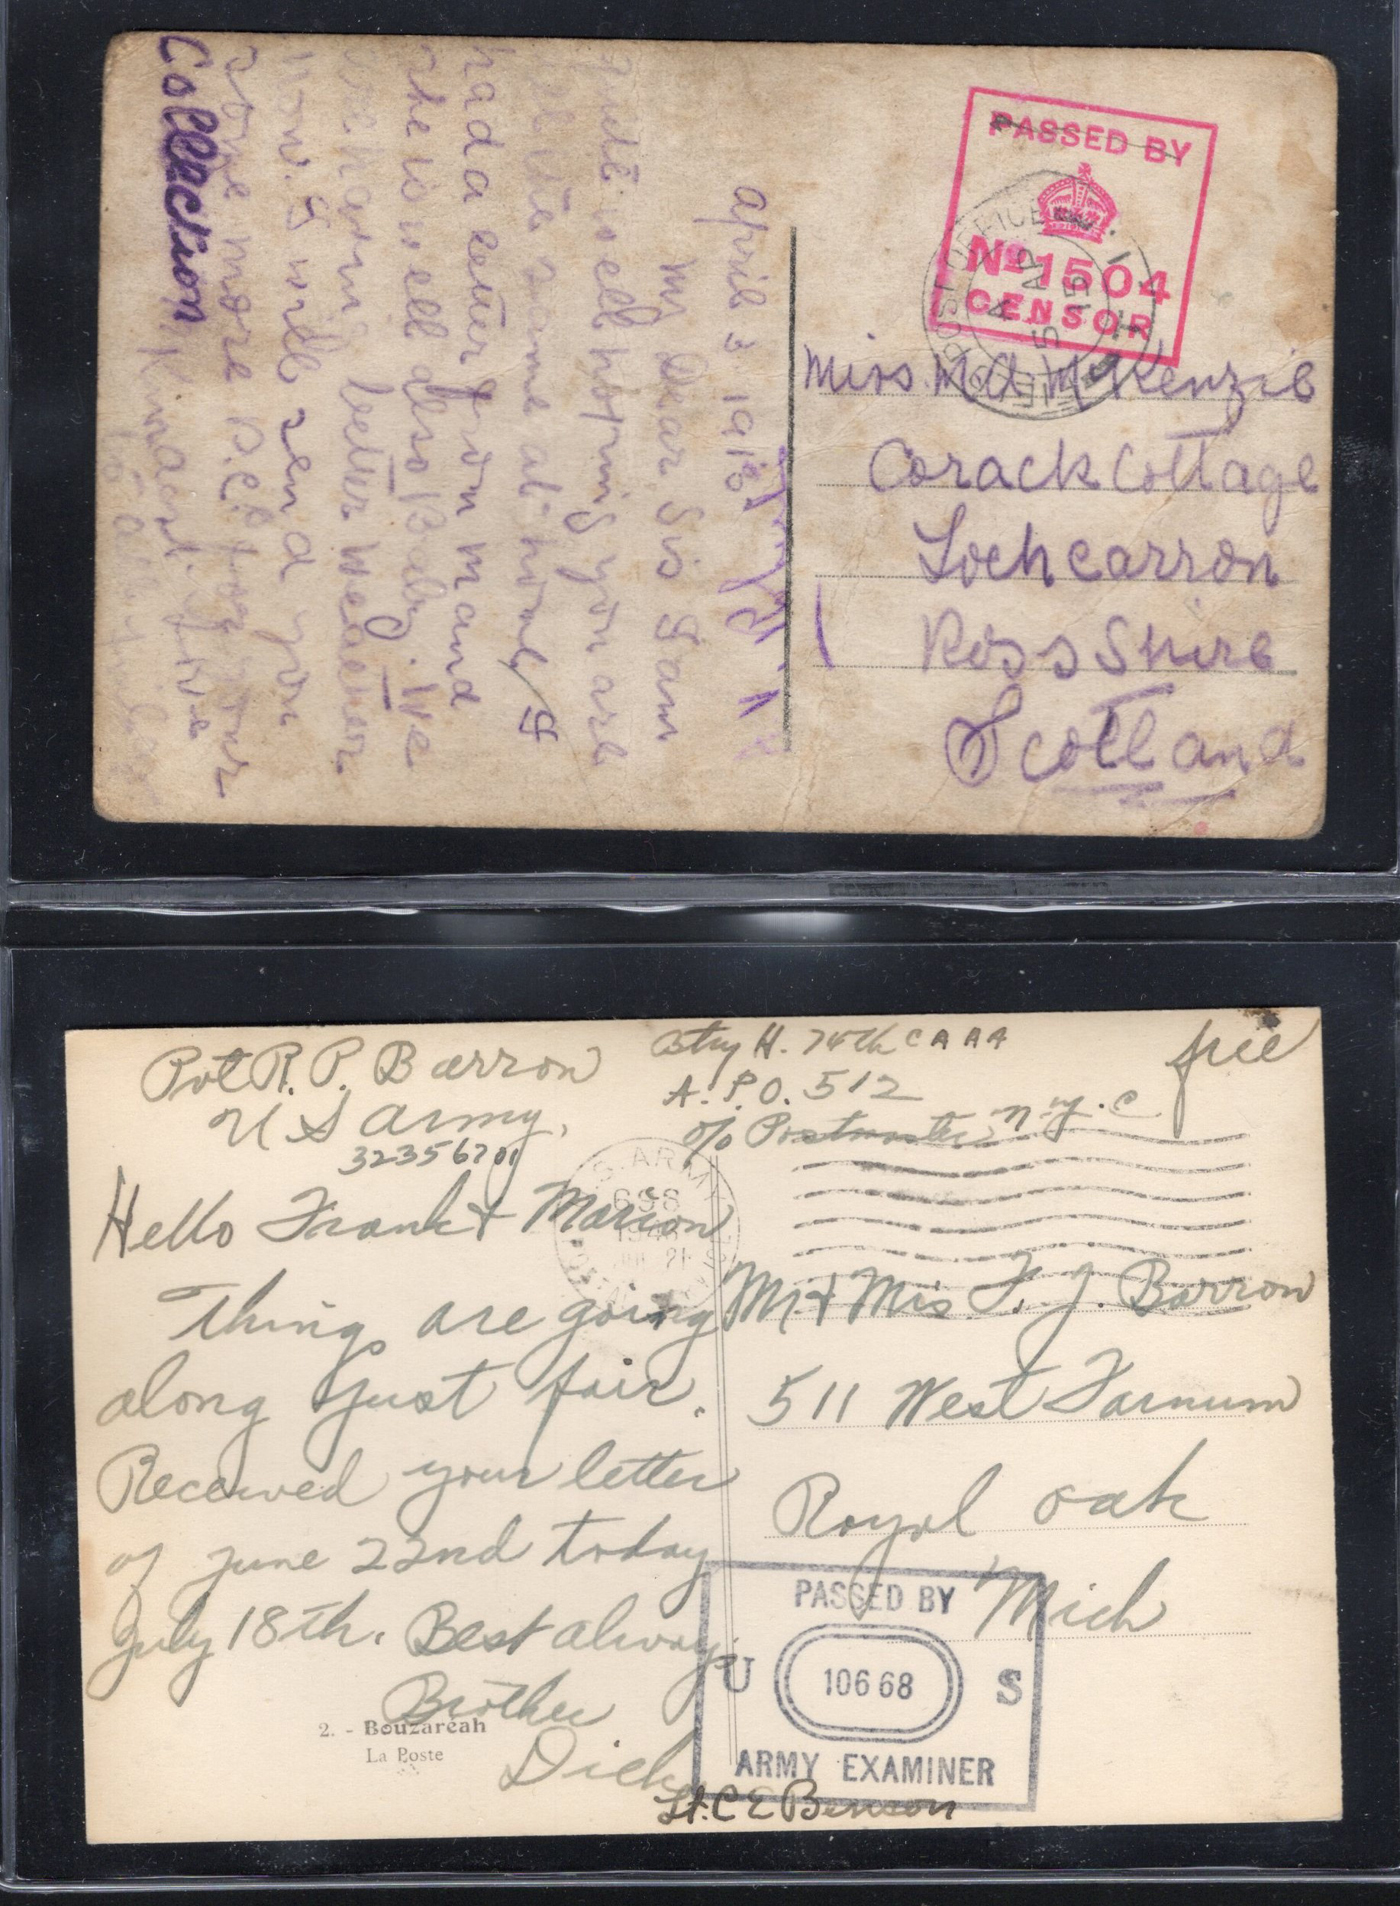 PASSED BY
No 1504
CENSOR
POST OFFICE
A
5 AP
15
Miss M A McKenzie
Corack Cottage
Lochcarron
Ross Shire
Scotland
April 3 191
My Dear Sis I am
quite well hoping you are
the same at home I
had a letter from M and
she is well also Baby. We
are having better weather
now. I will send you
some more P.C. for your
Collection Kindest love
to all
Pvt R. P. Barron
U S Army.
32356701
Btry H. 74th C A A A
A. P. O. 512
c/o Postmaster N. Y. C
free
U.S. ARMY
698
1943
JUL 21
Hello Frank + Marion
Things are going
along just fair.
Received your letter
of June 22nd today
July 18th. Best always
Brother
Dick
Mr + Mrs F. J. Barron
511 West Farnum
Royal Oak
Mich
PASSED BY
U 10668 S
ARMY EXAMINER
Lt. C E Benson
2. - Bouzaréah
La Poste